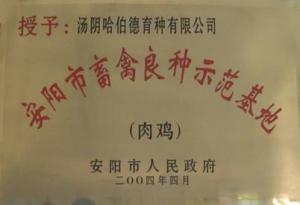 授予：汤阴哈伯德育种有限公司
安阳市畜禽良种示范基地
（肉鸡）
安阳市人民政府
二00四年四月